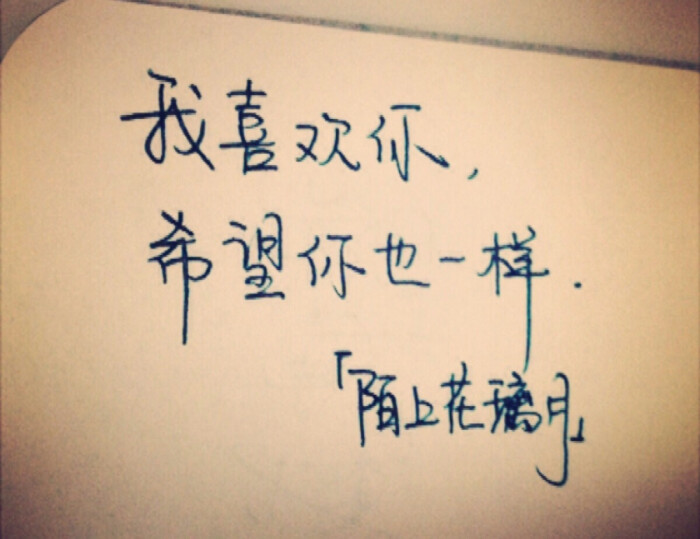 我喜欢你,
希望你也一样.
「陌上花璃月」